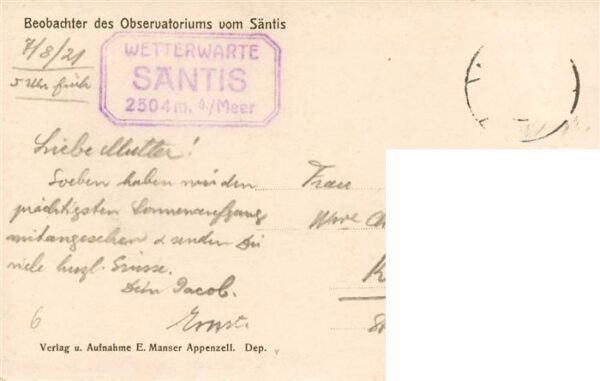 Beobachter des Observatoriums vom Säntis
7/8/21
5 Uhr früh
WETTERWARTE
SÄNTIS
2504 m. ü/Meer
Liebe Mutter!
Soeben haben wir den
prächtigsten Sonnenaufgang
mitangesehen & senden Dir
viele herzl. Grüsse.
Dein Jacob.
Ernst.
Frau
6
Verlag u. Aufnahme E. Manser Appenzell. Dep.